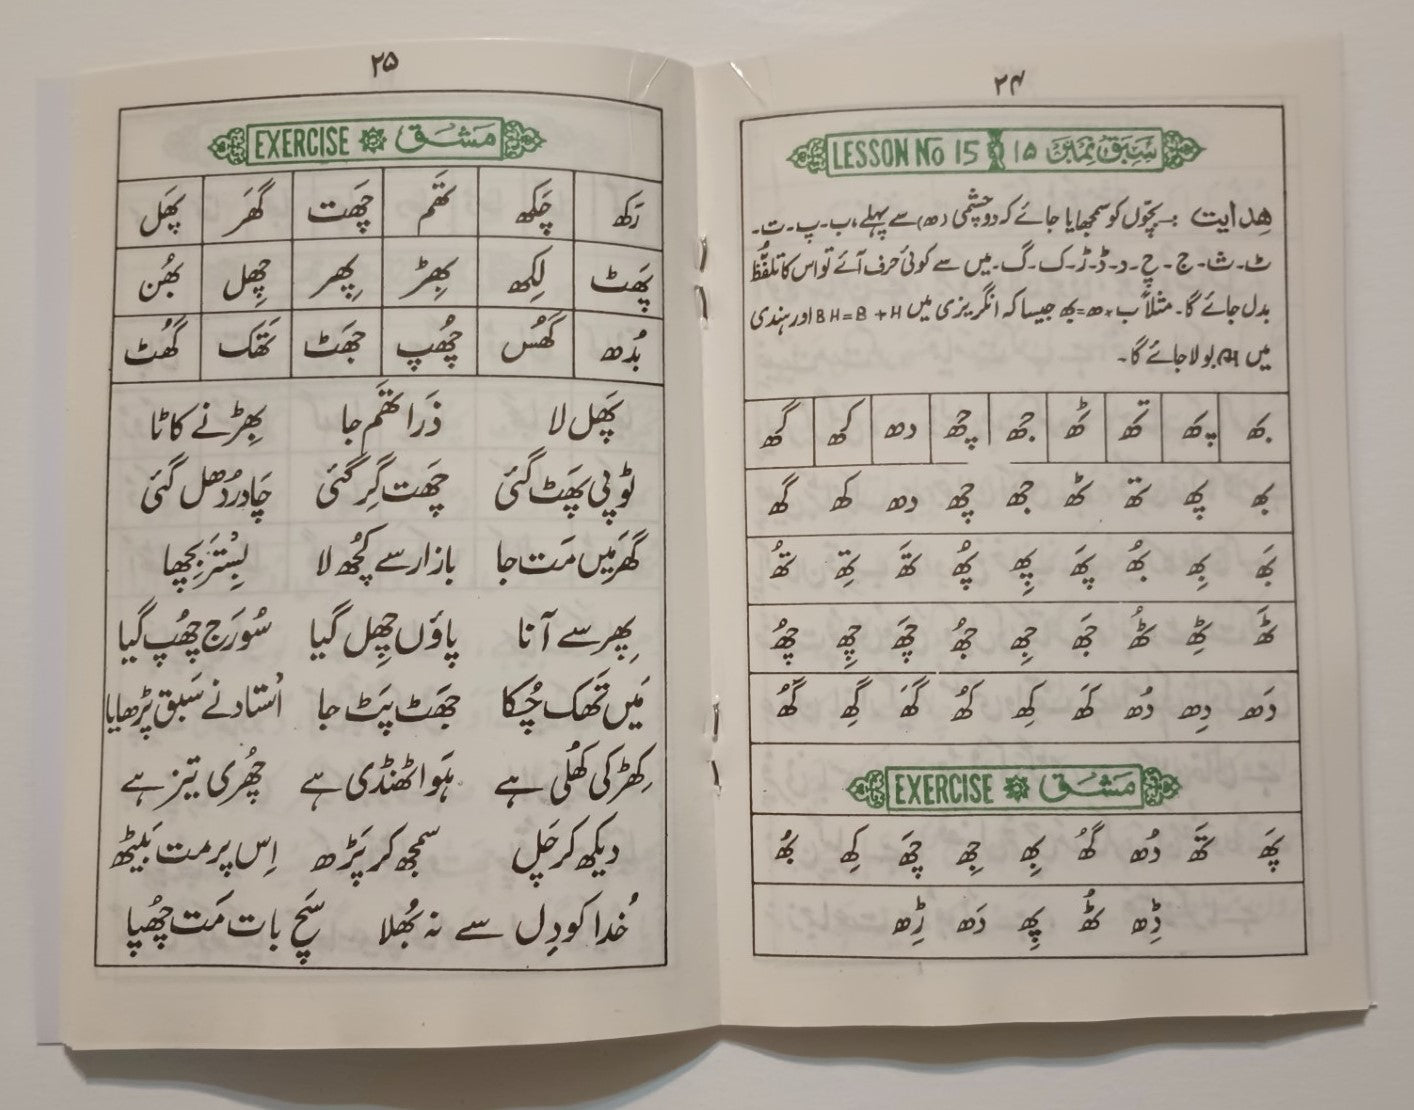 ۲۴
LESSON No 15 سبق نمبر ۱۵
ہدایت :۔ بچّوں کو سمجھایا جائے کہ دو چشمی (ھ) سے پہلے، ب۔ پ۔ ت۔
ٹ۔ ث۔ ج۔ چ۔ د۔ ڈ۔ ڑ۔ ک۔ گ۔ میں سے کوئی حرف آئے تو اس کا تلفّظ
بدل جائے گا۔ مثلاً ب + ھ = بھ جیسا کہ انگریزی میں BH=B+H اور ہندی
میں भ بولا جائے گا۔
بھ پھ تھ ٹھ جھ چھ دھ کھ گھ
بھ پھ تھ ٹھ جھ چھ دھ کھ گھ
بَھ بِھ بُھ پَھ پِھ پُھ تَھ تِھ تُھ
ٹَھ ٹِھ ٹُھ جَھ جِھ جُھ چَھ چِھ چُھ
دَھ دِھ دُھ کَھ کِھ کُھ گَھ گِھ گُھ
EXERCISE مشق
پَھ تَھ دُھ گُھ بِھ جِھ چَھ کِھ بُھ
ڈِھ ٹُھ پِھ دَھ ڑِھ
۲۵
EXERCISE مشق
رَکھ چَکھ تَھم چَھت گَھر پَھل
پَھٹ لِکھ بِھڑ پِھر چِھل بُھن
بُدھ گَھس چُھپ جَھٹ تَھک گُھٹ
پَھل لا ذَرا تَھم جا بِھڑ نے کاٹا
ٹوپی پَھٹ گئی چَھت گِر گئی چَادر دُھل گئی
گَھر مَیں مَت جا بازار سے کُچھ لا بِسْتَر بِچھا
پِھر سے آنا پاؤں چِھل گیا سُورَج چُھپ گیا
مَیں تَھک چُکا جَھٹ پَٹ جا اُستاد نے سَبق پڑھایا
کِھڑکی کُھلی ہے ہَوا ٹھنڈی ہے چُھری تیز ہے
دیکھ کر چَل سمجھ کر پَڑھ اِس پر مت بَیٹھ
خُدا کو دِل سے نہ بُھلا سَچ بات مَت چُھپا